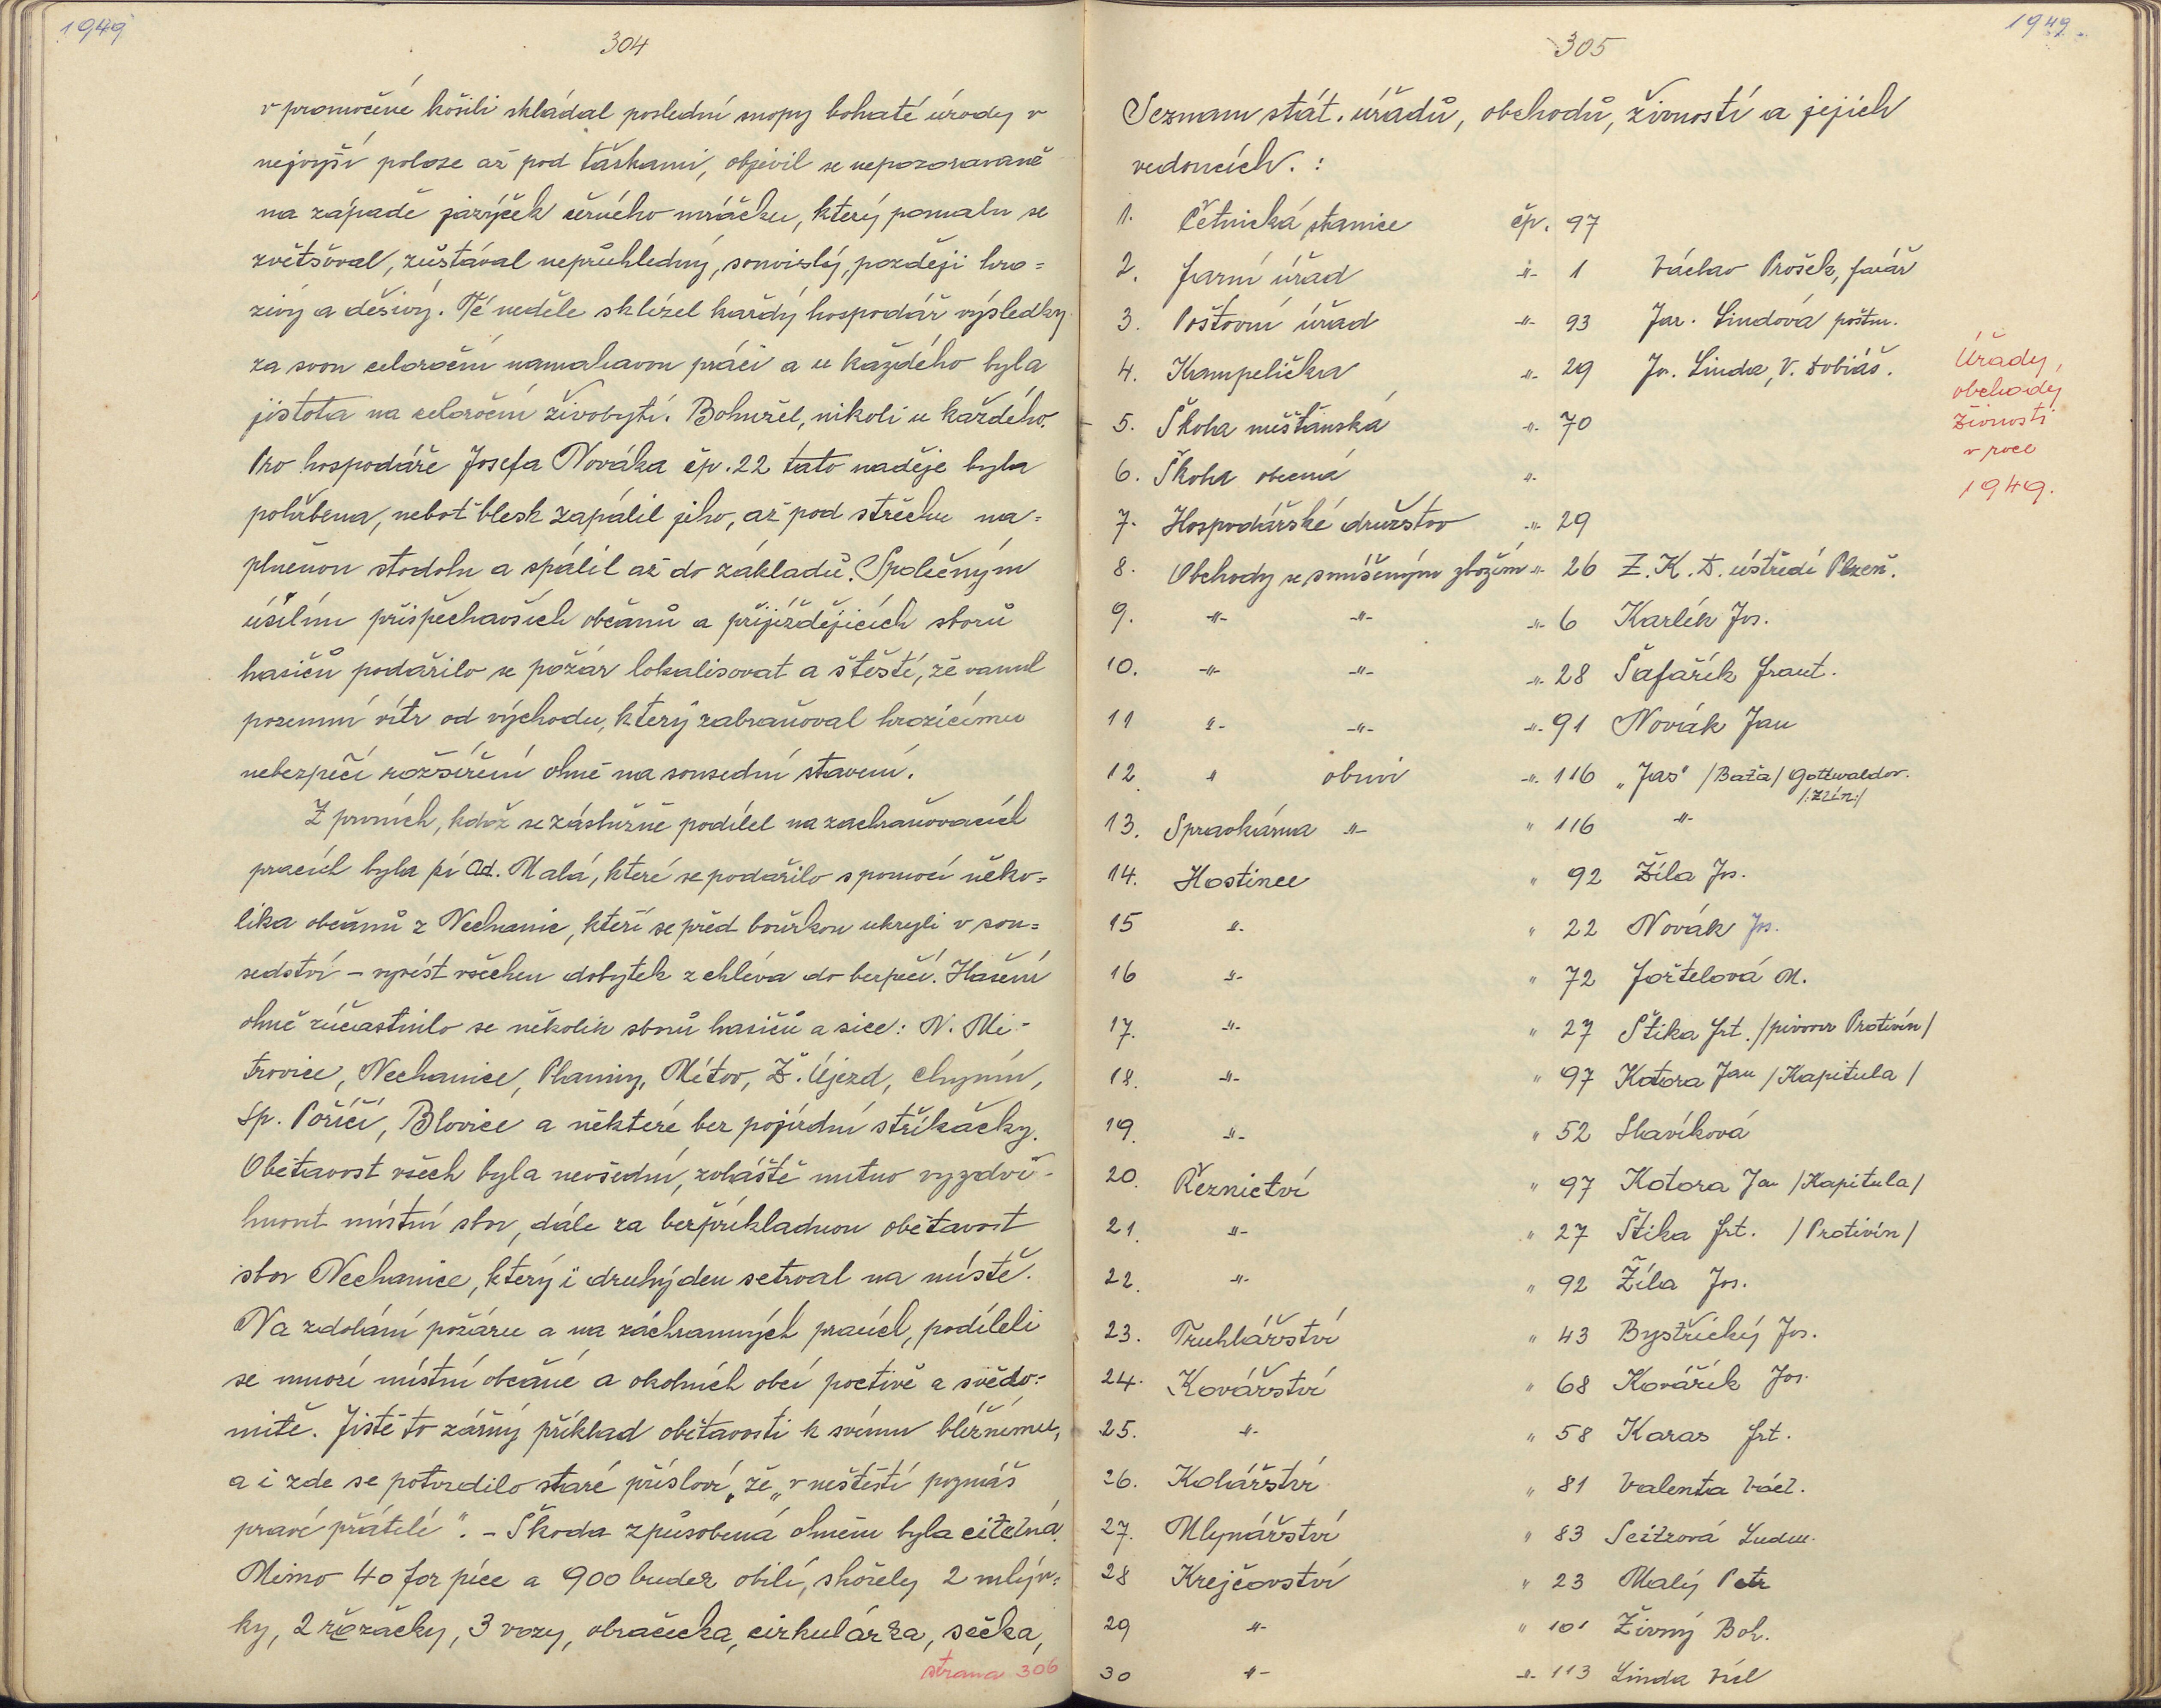 1949
304
v promočené košili skládal poslední snopy bohaté úrody v
nejvyší poloze až pod taškami, objevil se nepozorovaně
na západě jazýček černého mráčku, který pomalu se
zvětšoval, zůstával neprůhledný, souvislý, později hro=
zivý a děsivý. Té neděle sklízel každý hospodář výsledky
za svou celoroční namahavou práci a u každého byla
jistota na celoroční živobytí. Bohužel, nikoli u každého.
Pro hospodáře Josefa Nováka čp. 22 tato naděje byla
pohřbena, neboť blesk zapálil jeho, až pod střechu na=
plněnou stodolu a spálil až do základů. Společným
úsilím přispěchavších občanů a přijíždějících sborů
hasičů podařilo se požár lokalisovat a štěstí, že vanul
pozemní vítr od východu, který zabraňoval hrozícímu
nebezpečí rozšíření ohně na sousední stavení.
Z prvních, kdož se záslužně podílel na zachraňovacích
pracích byla pí Ad. Malá, které se podařilo s pomocí něko=
lika občanů z Nechanic, kteří se před bouřkou ukryli v sou=
sedství – vyvést všechen dobytek z chléva do bezpečí. Hašení
ohně zúčastnilo se několik sborů hasičů a sice: N. Mi-
trovice, Nechanice, Planiny, Mítov, Ž. Újezd, Chynín,
Sp. Poříčí, Blovice a některé bez pojízdní stříkačky.
Obětavost všech byla nevšední, zvláště nutno vyzdvi-
hnout místní sbor, dále za bezpříkladnou obětavost
sbor Nechanice, který i druhý den setrval na místě.
Na zdolání požáru a na záchranných pracích, podíleli
se mnozí místní občané a okolních obcí poctivě a svědo=
mitě. Jistě to zářný příklad obětavosti k svému bližnímu,
a i zde se potvrdilo staré přísloví, že „v neštěstí poznáš
pravé přátelé". – Škoda způsobená ohněm byla citelná.
Mimo 40 for píce a 900 budek obilí, shořely 2 mlýn=
ky, 2 řezačky, 3 vozy, obračečka, cirkulárka, sečka,
strana 306
1949.
305
Seznam stát. úřadů, obchodů, živností a jejich
vedoucích. :
1. Četnická stanice čp. 97
2. Farní úřad -"- 1 Václav Prošek, farář
3. Poštovní úřad -"- 93 Jar. Lindová poštm.
4. Kampelička -"- 29 Jos. Linda, V. Tobiáš.
5. Škola měšťanská -"- 70
6. Škola obecná -"-
7. Hospodářské družstvo -"- 29
8. Obchody se smíšeným zbožím -"- 26 Z. K. D. ústředí Plzeň.
9. -"- -"- -"- 6 Karlík Jos.
10. -"- -"- -"- 28 Šafařík Frant.
11 -"- -"- -"- 91 Novák Jan
12. " obuvi -"- 116 „Jas" /Baťa/ Gottwaldov.
/:Zlín:/
13. Správkárna -"- " 116 -"-
14. Hostinec " 92 Žíla Jos.
15 -"- " 22 Novák Jos.
16 -"- " 72 Fořtelová M.
17. -"- " 27 Štika Frt. /pivovar Protivín/
18. -"- " 97 Kotora Jan /Kapitula/
19. -"- " 52 Slavíková
20. Řeznictví " 97 Kotora Jan /Kapitula/
21. -"- " 27 Štika Frt. /Protivín/
22. -"- " 92 Žíla Jos.
23. Truhlářství " 43 Bystřický Jos.
24. Kovářství " 68 Kovářík Jos.
25. -"- " 58 Karas Frt.
26. Kolářství " 81 Valenta Václ.
27. Mlynářství " 83 Seitzová Ludm.
28 Krejčovství " 23 Malý Petr
29 -"- " 101 Živný Boh.
30 -"- -"- 113 Linda Václ
Úřady,
obchody
živnosti
v roce
1949.